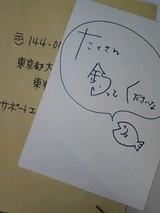 〒144-01
東京都大
東
サポートエ
たくさん
釣って くださいな